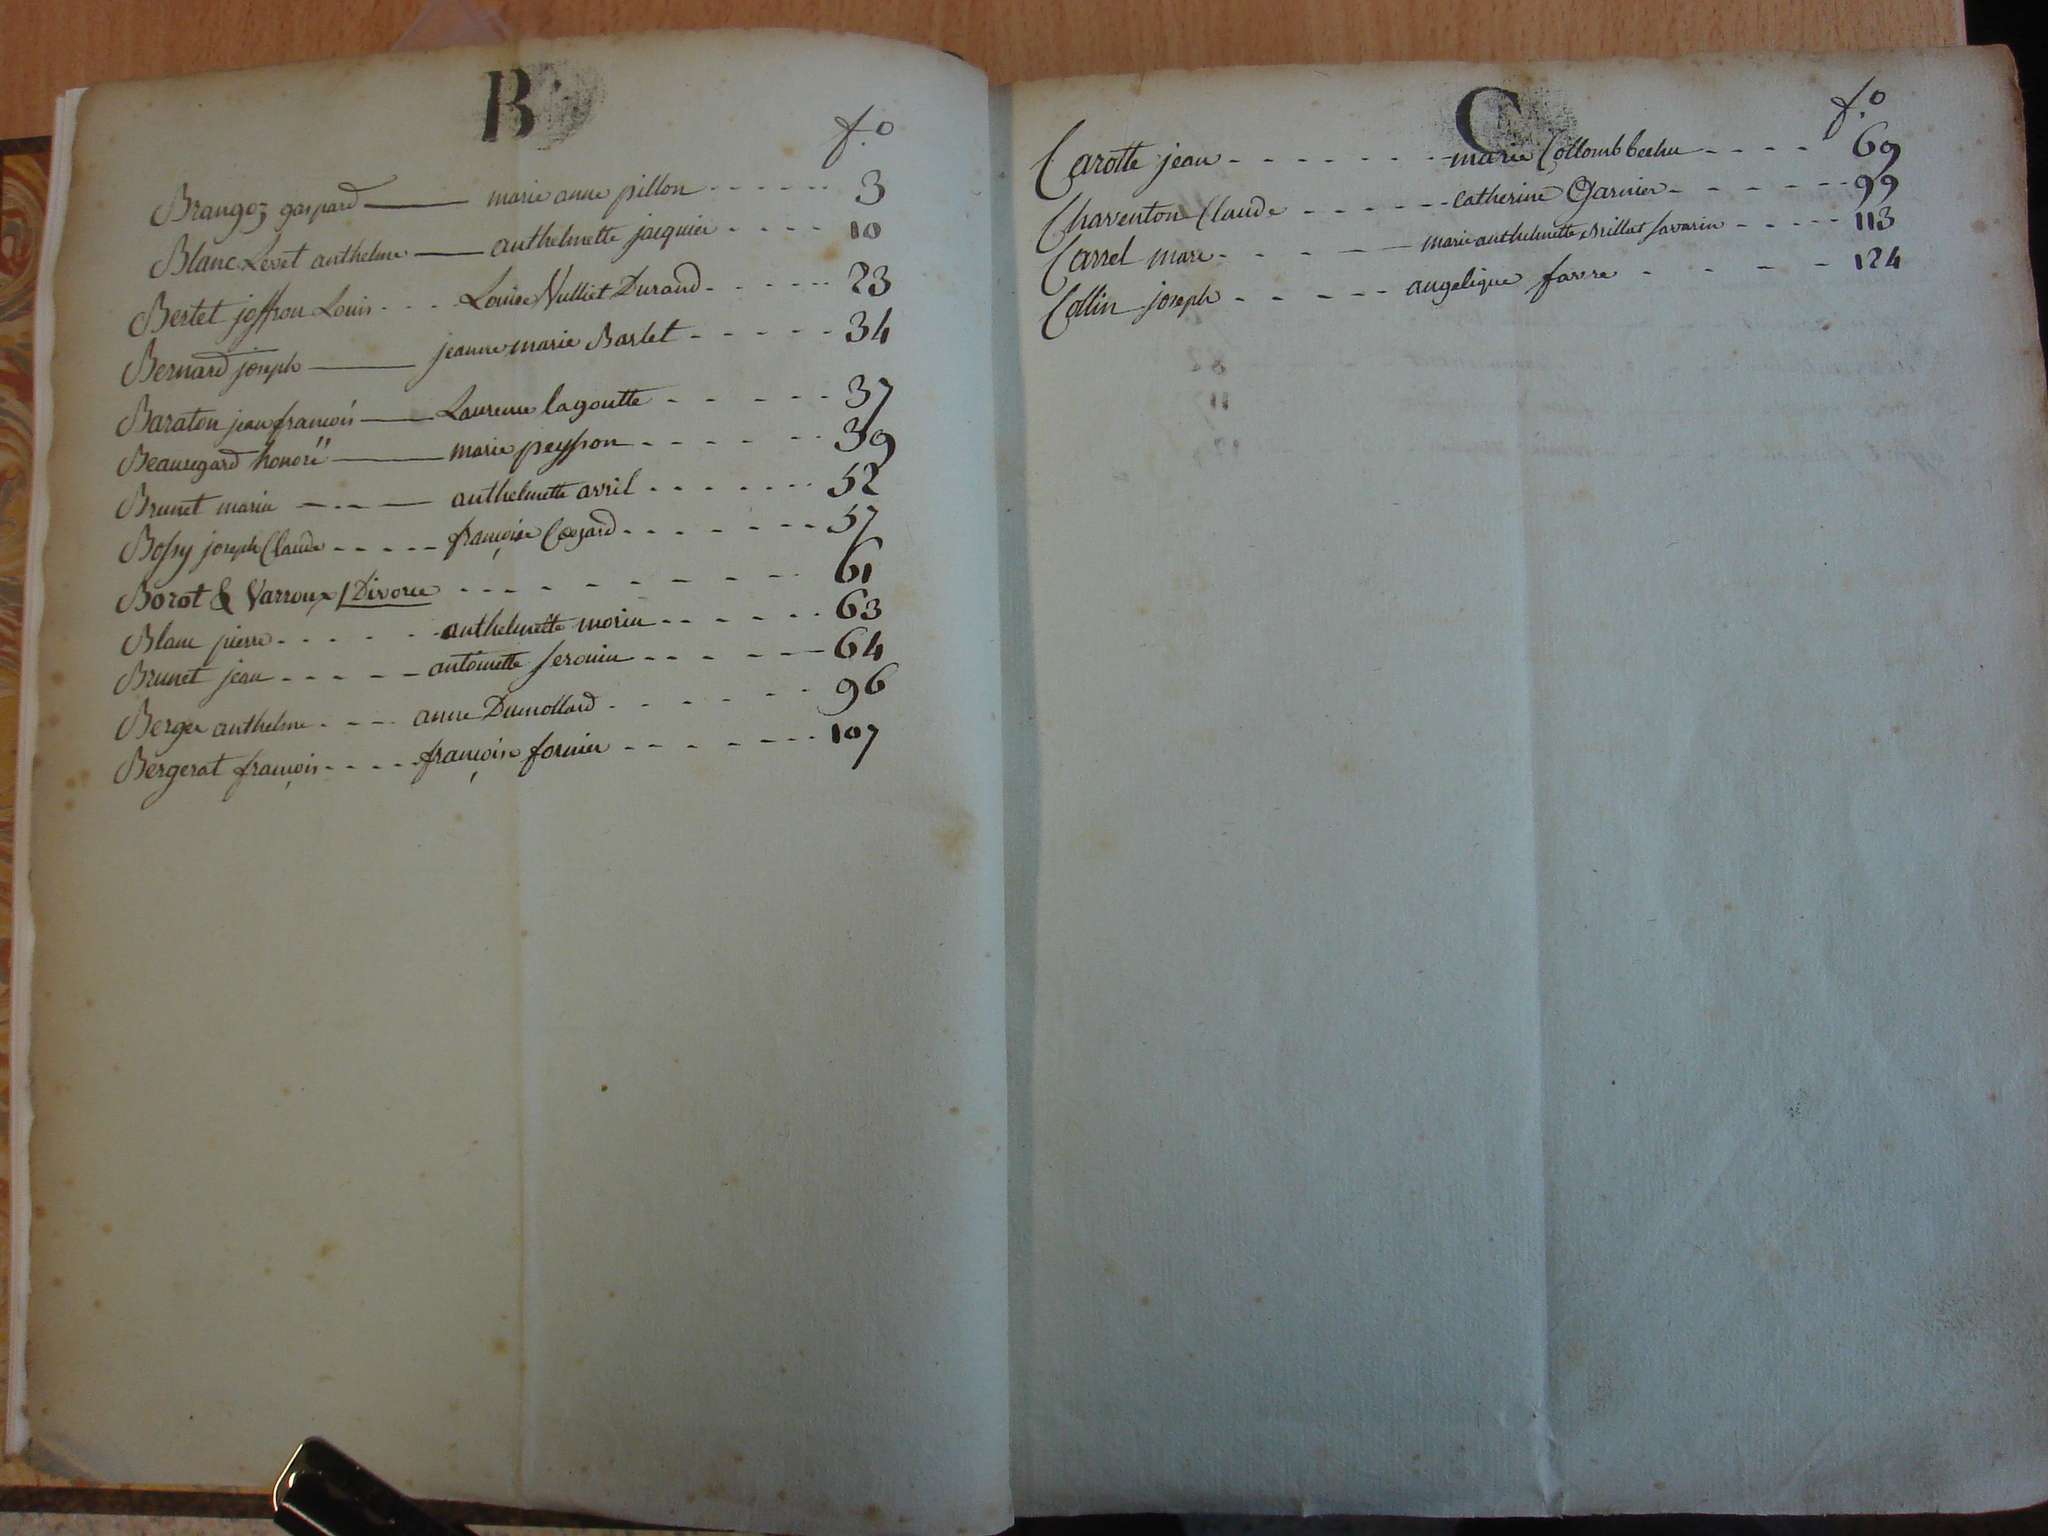 B
f.o
Brangoz gaspard marie anne pillon 3
Blanc Levet anthelme anthelmette jacquier 10
Bertet joffrou Louis Louise Vulliet Durand 23
Bernard joseph jeanne marie Barlet 34
Baraton jean francois Laurence lagoutte 37
Beauregard honoré marie peysson 39
Brunet marin anthelmette avril 52
Bossy joseph Claude françoise Cozard 57
Borot & Varroux / Divorce 61
Blanc pierre anthelmette morin 63
Brunet jean antoinette 64
Berger anthelme anne Dumollard 96
Bergerat françois françoise fornier 107
C
f.o
Carotte jean marie Collomb 69
Charventon Claude catherine Garnier 99
Carrel marc marie anthelmette Brillat Savarin 113
Collin joseph angelique favre 124